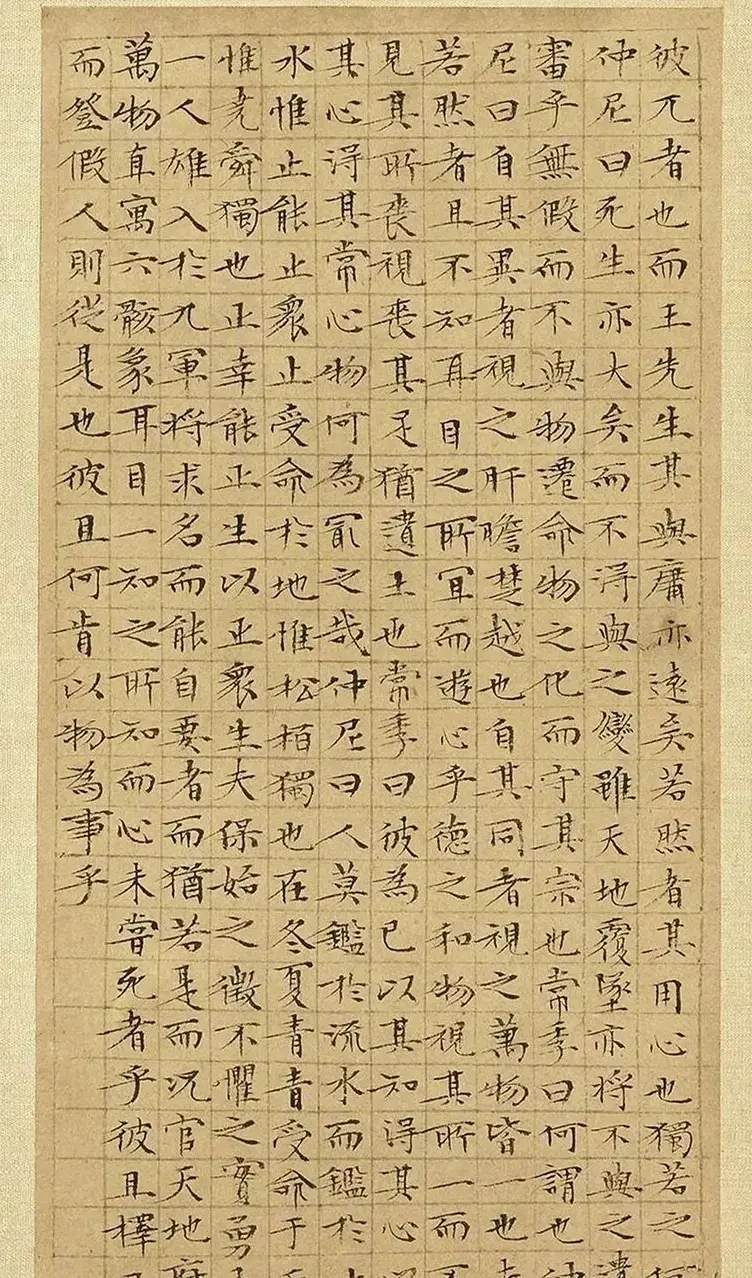 彼兀者也而王先生其與庸亦遠矣若然者其用心也獨若之
仲尼曰死生亦大矣而不得與之變雖天地覆墜亦將不與之遺
審乎無假而不與物遷命物之化而守其宗也常季曰何謂也
尼曰自其異者視之肝膽楚越也自其同者視之萬物皆一也
若然者且不知耳目之所宜而遊心乎德之和物視其所一而
見其所喪視喪其足猶遺土也常季曰彼為己以其知得其心
其心得其常心物何為冣之哉仲尼曰人莫鑑於流水而鑑於
水惟止能止眾止受命於地惟松柏獨也在冬夏青青受命于
惟堯舜獨也正幸能正生以正眾生夫保始之徵不懼之實勇
一人雄入於九軍將求名而能自要者而猶若是而況官天地府
萬物直寓六骸象耳目一知之所知而心未嘗死者乎彼且擇
而登假人則從是也彼且何肯以物為事乎